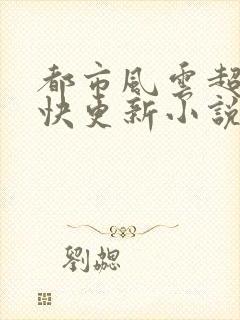 都市風雲超
快更新小說
劉勰